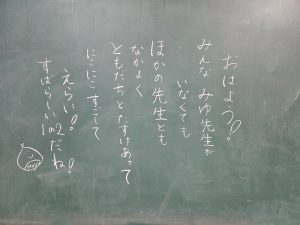 おはよう!!
みんな みゆ先生が
いなくても
ほかの先生とも
なかよく
ともだちとたすけあって
にこにこ すごして
えらい!!
すばらしい1の2だね!